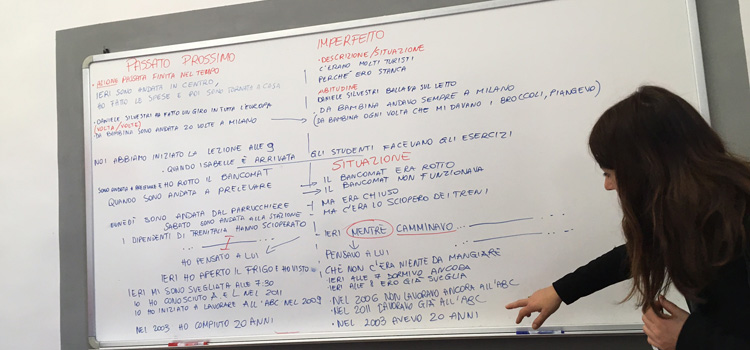 PASSATO PROSSIMO
• AZIONE PASSATA FINITA NEL TEMPO
IERI SONO ANDATA IN CENTRO,
HO FATTO LE SPESE E POI SONO TORNATA A CASA
• DANIELE SILVESTRI HA FATTO UN GIRO IN TUTTA L'EUROPA
(VOLTA/VOLTE)
DA BAMBINA SONO ANDATA 20 VOLTE A MILANO
NOI ABBIAMO INIZIATO LA LEZIONE ALLE 9
• QUANDO ISABELLE È ARRIVATA
SONO ANDATA A E HO ROTTO IL BANCOMAT
QUANDO SONO ANDATA A PRELEVARE
LUNEDÌ SONO ANDATA DAL PARRUCCHIERE
SABATO SONO ANDATA ALLA STAZIONE
I DIPENDENTI DI TRENITALIA HANNO SCIOPERATO
... I ...
HO PENSATO A LUI
IERI HO APERTO IL FRIGO E HO VISTO
IERI MI SONO SVEGLIATA ALLE 7:30
IO HO CONOSCIUTO A E L NEL 2011
IO HO INIZIATO A LAVORARE ALL'ABC NEL 2009
NEL 2003 HO COMPIUTO 20 ANNI
IMPERFETTO
• DESCRIZIONE/SITUAZIONE
C'ERANO MOLTI TURISTI
PERCHÉ ERO STANCA
ABITUDINE
DANIELE SILVESTRI BALLAVA SUL LETTO
DA BAMBINA ANDAVO SEMPRE A MILANO
(DA BAMBINA OGNI VOLTA CHE MI DAVANO I BROCCOLI, PIANGEVO)
GLI STUDENTI FACEVANO GLI ESERCIZI
SITUAZIONE
IL BANCOMAT ERA ROTTO
IL BANCOMAT NON FUNZIONAVA
MA ERA CHIUSO
MA C'ERA LO SCIOPERO DEI TRENI
IERI MENTRE CAMMINAVO ...
PENSAVO A LUI
CHE NON C'ERA NIENTE DA MANGIARE
IERI ALLE 7 DORMIVO ANCORA
IERI ALLE 8 ERO GIÀ SVEGLIA
• NEL 2006 NON LAVORAVO ANCORA ALL'ABC
• NEL 2011 LAVORAVO GIÀ ALL'ABC
• NEL 2003 AVEVO 20 ANNI